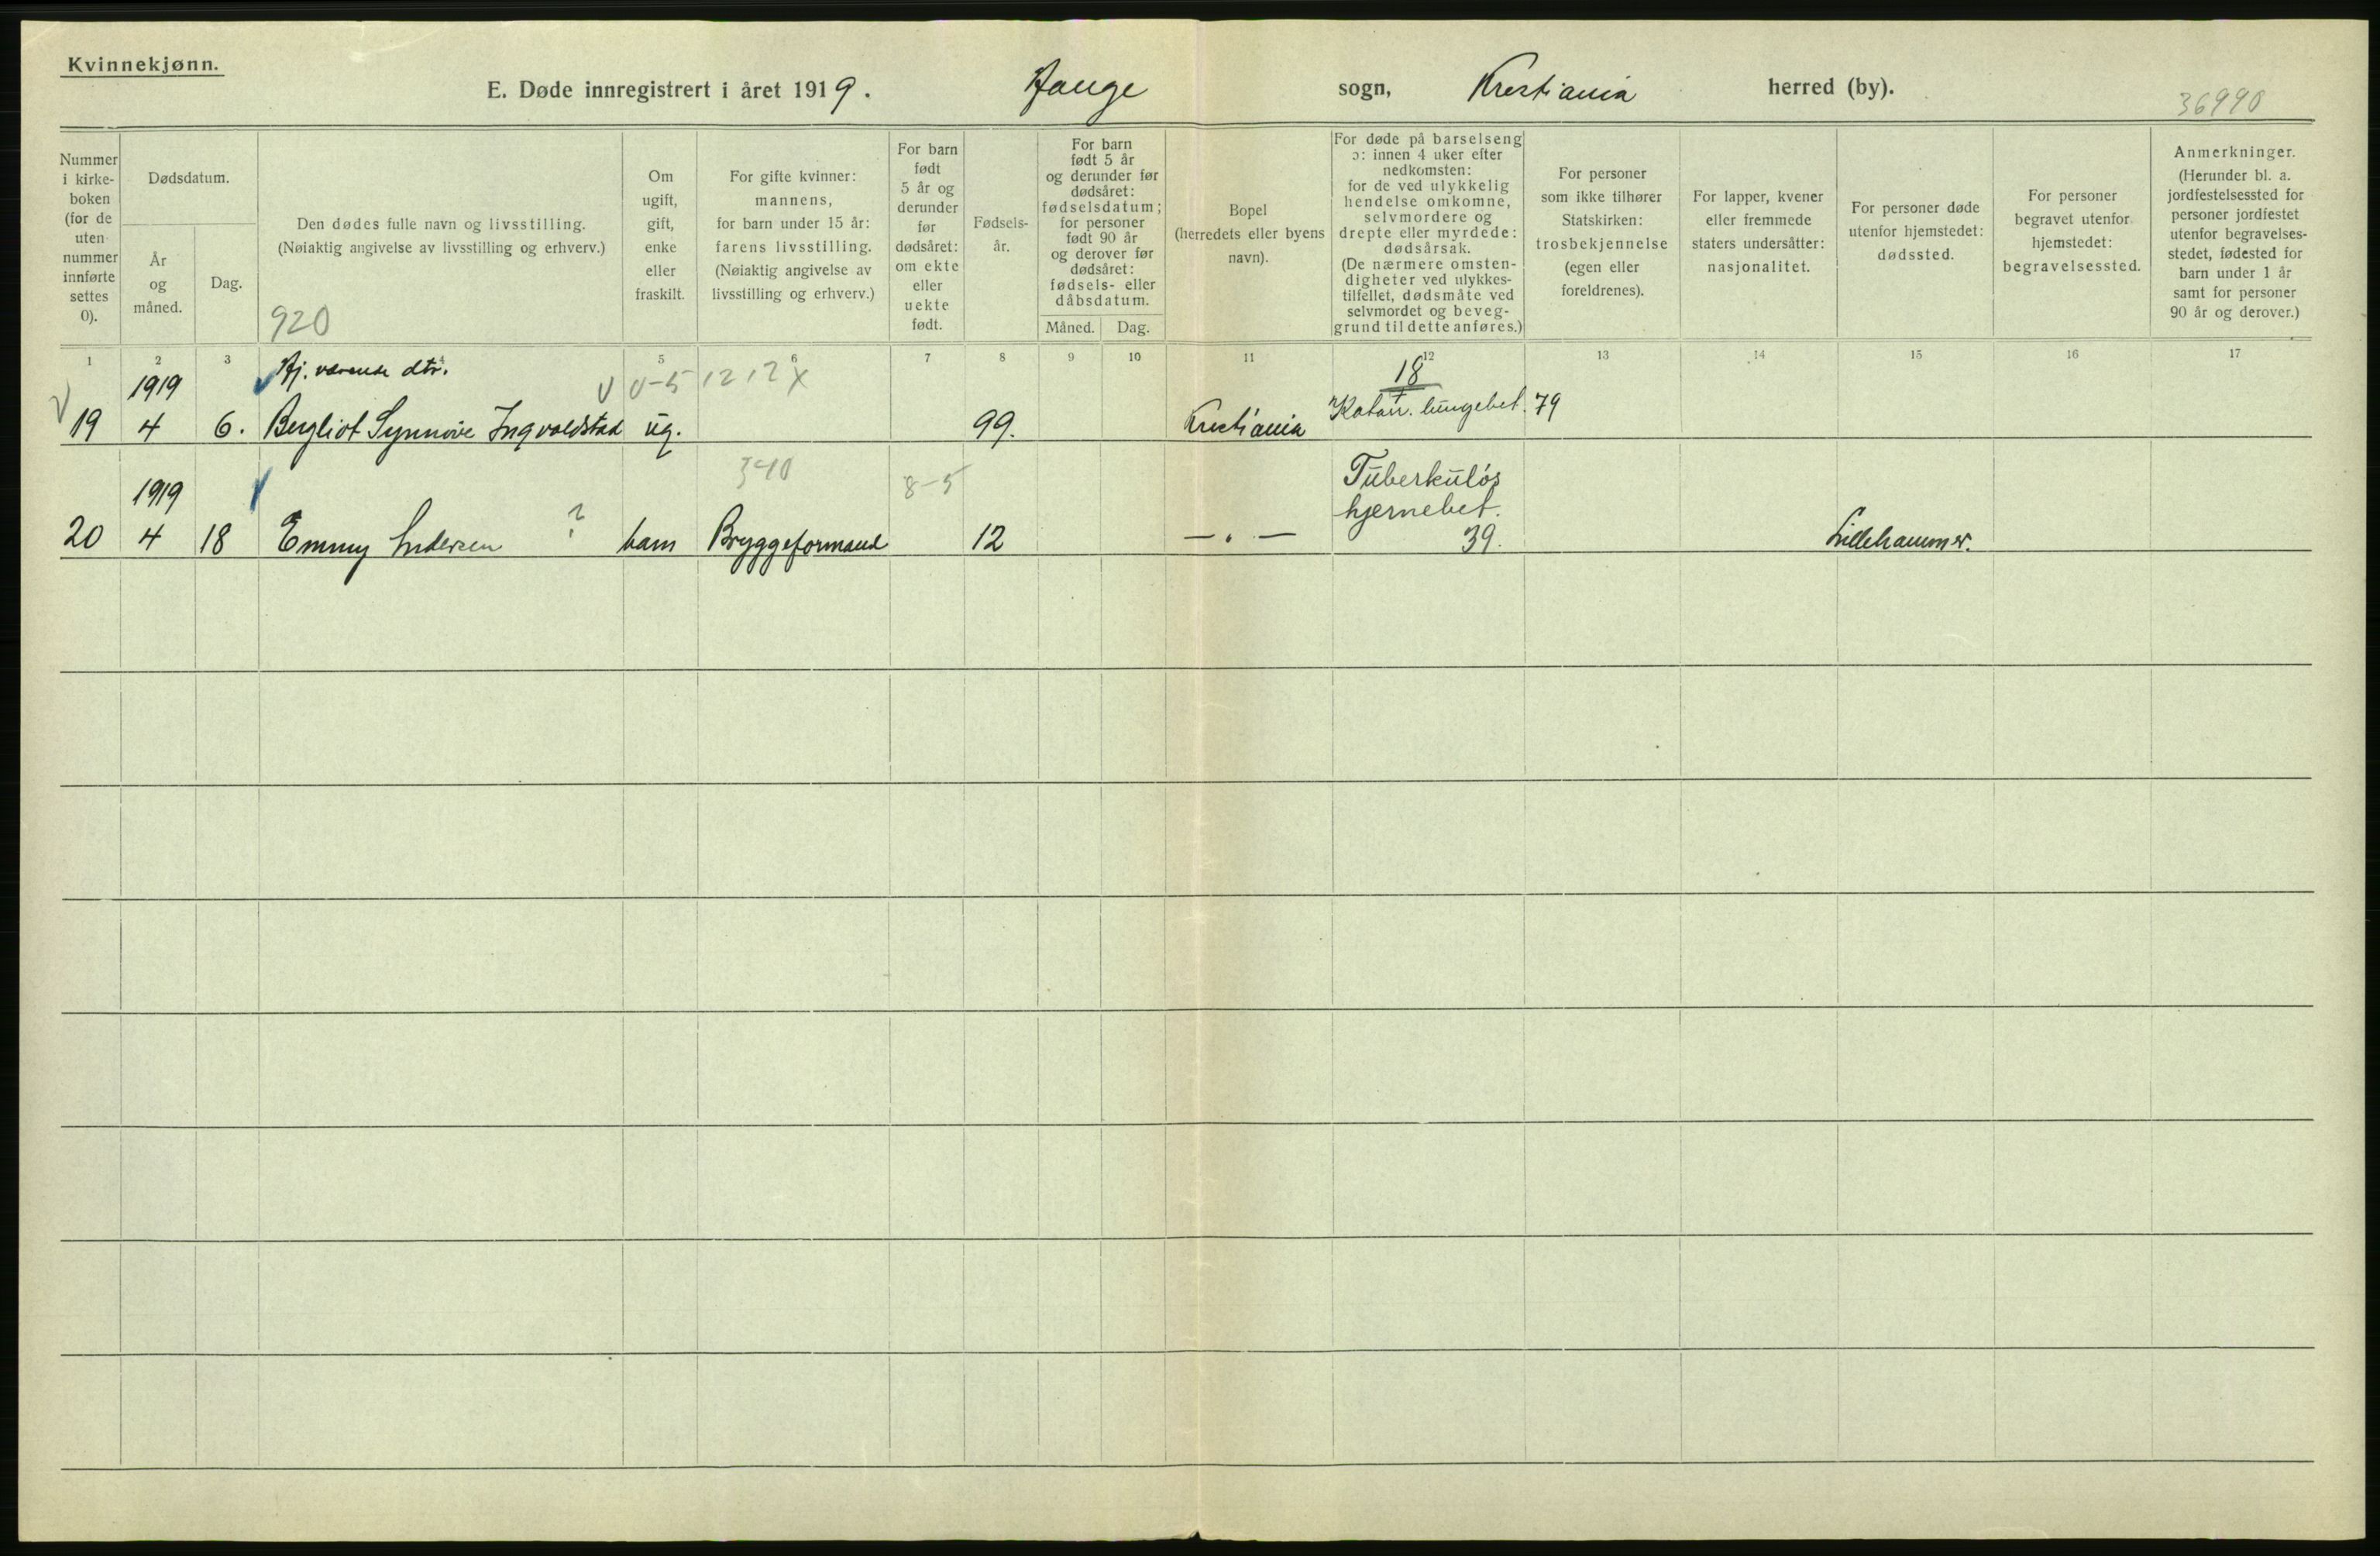 Kvinnekjønn.
E. Døde innregistrert i året 1919. Hauge sogn, Krestiania herred (by).
36990
Nummer i kirke-boken (for de uten nummer innførte settes 0).
Dødsdatum.
År og måned.
Dag.
Den dødes fulle navn og livsstilling.
(Nøiaktig angivelse av livsstilling og erhverv.)
920
Om ugift, gift, enke eller fraskilt.
For gifte kvinner: mannens, for barn under 15 år: farens livsstilling. (Nøiaktig angivelse av livsstilling og erhverv.)
For barn født 5 år og derunder før dødsåret: om ekte eller uekte født.
Fødsels-år.
For barn født 5 år og derunder før dødsåret: fødselsdatum; for personer født 90 år og derover før dødsåret: fødsels- eller dåbsdatum.
Måned. Dag.
Bopel (herredets eller byens navn).
For døde på barselseng ɔ: innen 4 uker efter nedkomsten: for de ved ulykkelig hendelse omkomne, selvmordere og drepte eller myrdede: dødsårsak. (De nærmere omsten-digheter ved ulykkes-tilfellet, dødsmåte ved selvmordet og beveg-grund til dette anføres.)
For personer som ikke tilhører Statskirken: trosbekjennelse (egen eller foreldrenes).
For lapper, kvener eller fremmede staters undersåtter: nasjonalitet.
For personer døde utenfor hjemstedet: dødssted.
For personer begravet utenfor hjemstedet: begravelsessted.
Anmerkninger. (Herunder bl. a. jordfestelsessted for personer jordfestet utenfor begravelses-stedet, fødested for barn under 1 år samt for personer 90 år og derover.)
1 2 3 4 5 6 7 8 9 10 11 12 13 14 15 16 17
1919 Hj. værende dtr. 0-5 1212 X 18
19 4 6. Bergliot Synnøve Ingvaldstad ug. 99. Krestiania Katarr. lungebet. 79
1919 340 8-5 Tuberkuløs
hjernebet.
20 4 18 Emmy Andersen ? barn Bryggeformand 12 — „ — 39. Lillehammer.